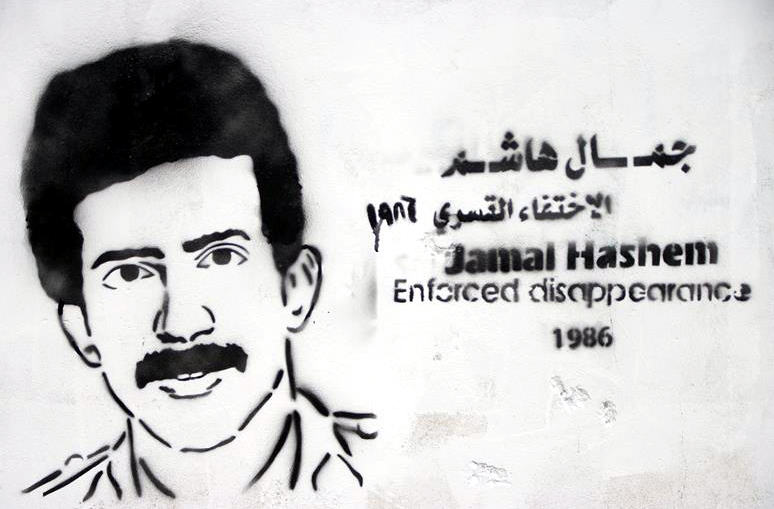 جمـــال هاشـــم
الإختفاء القسري ١٩٨٦
Jamal Hashem
Enforced disappearance
1986